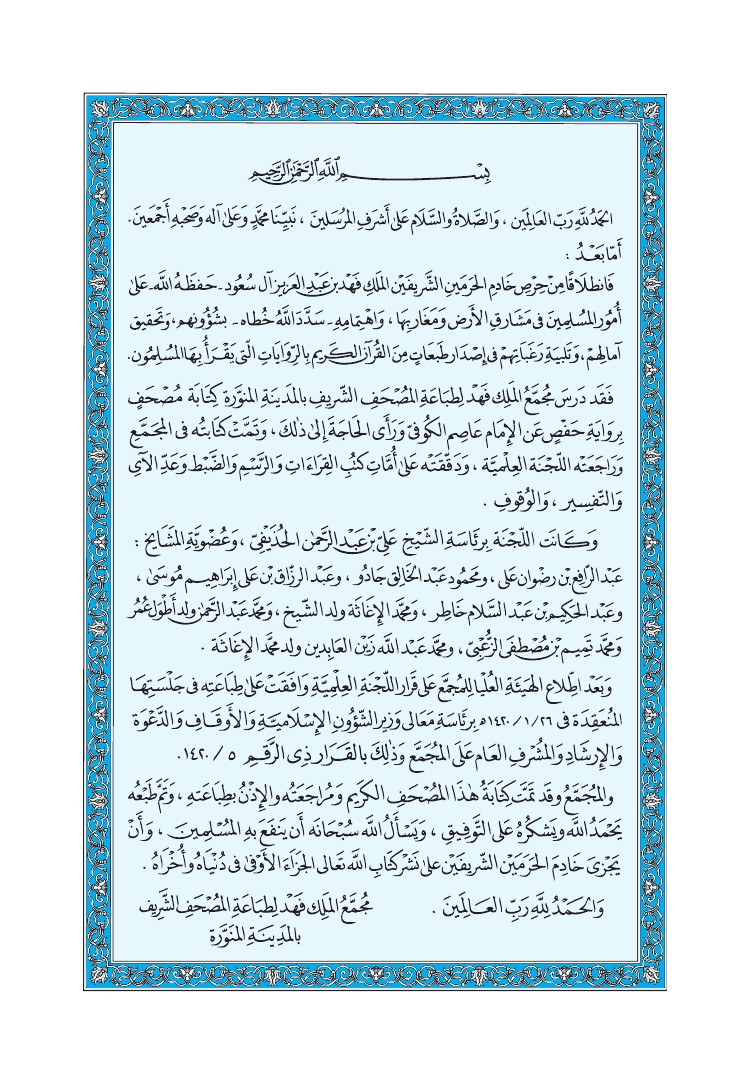 بِسْمِ ٱللَّهِ ٱلرَّحْمَٰنِ ٱلرَّحِيمِ
الحَمدُ للَّهِ رَبِّ العَالَمِينَ ، وَالصَّلَاةُ والسَّلَام عَلىٰ أَشرَفِ المُرسَلينَ ، نَبيِّنَا محمَّدٍ وَعَلىٰ آله وَصَحْبِهِ أَجمَعينَ.
أَمّا بَعْدُ :
فَانطِلَاقًا مِن حِرصِ خَادِم الحَرَمينِ الشَّرِيفَيْن الملَكِ فَهد بن عَبدِ العَزيز آل سُعُود - حَفظَهُ اللَّه - عَلىٰ
أُمُور المُسلِمينَ في مَشَارقِ الأَرضِ وَمَغَاربِهَا ، وَاهتِمامِهِ - سَدَّدَ اللَّهُ خُطاه - بشُؤُونِهم ، وَتحقيق
آمالِهم ، وَتَلبيَةِ رَغبَاتِهمْ في إِصدَار طَبَعاتٍ مِنَ القُرآن الكَريم بالرِّوَايَاتِ الَّتي يَقْرَأُ بِهَا المُسْلمُون.
فَقَد دَرَسَ مُجمَّعُ الملَكِ فَهْد لِطبَاعَةِ المُصْحَفِ الشَّريفِ بالمَدينَةِ المنوَّرَة كِتَابَةَ مُصْحَفٍ
برِوَايَةِ حَفْصٍ عَن الإِمَام عَاصِم الكُوفيّ وَرَأَى الحَاجَةَ إِلىٰ ذلكَ ، وَتمَّتْ كتَابتُه في المُجَمَّع
وَرَاجَعَتْه اللَّجْنَة العِلميَّة ، وَدَقَّقَتْه عَلىٰ أُمَّاتِ كتُبِ القِرَاءَاتِ وَالرَّسْمِ وَالضَّبْط وَعَدِّ الآيِ
وَالتَّفسِير ، وَالوُقوفِ .
وَكَانَت اللَّجْنَة برئَاسَةِ الشَّيْخ عَليّ بن عَبدِ الرَّحمٰن الحُذَيْفيّ ، وَعُضْويَّةِ المشَايخ :
عَبد الرَّافِع بن رِضوَان عَلي ، ومَحمُود عَبد الخَالِق جَادُو ، وعَبد الرزَّاق بن عَلي إِبرَاهِيم مُوسَىٰ ،
وعَبد الحَكِيم بن عَبد السَّلام خَاطِر ، وَمحمَّد الإِغَاثَة ولد الشَّيخ ، وَمحمَّد عَبد الرَّحمٰن ولد أَطوَل عُمُر
وَمحمَّد تَميم بن مُصْطفَى الزُّعْبيّ ، ومحمَّد عَبد اللَّه زَيْن العَابدِين ولد محمَّد الإِغَاثَة .
وَبَعْد اطِّلاع الهَيئَةِ العُليَا للمُجَمَّع عَلى قَرار اللَّجْنَةِ العِلْميَّةِ وَافَقَتْ عَلىٰ طبَاعَتِه في جَلْسَتِهَا
المُنعَقِدَة في ١٤٢٠/١/٢٦هـ برئَاسَةِ مَعَالي وَزير الشّؤُون الإِسْلَاميَّةِ وَالأَوقَافِ وَالدَّعْوَة
وَالإِرشَادِ وَالمُشرف العَام عَلَى المُجَمَّع وَذلِكَ بالقَرَار ذِي الرَّقم ١٤٢٠/٥.
والمُجَمَّعُ وقَد تمَّتْ كِتَابَةُ هٰذَا المُصْحَفِ الكَريم وَمُرَاجَعَتُه والإِذْنُ بطِبَاعَتِهِ ، وَتمَّ طَبْعُه
يَحْمَدُ اللَّهَ ويَشكُرُهُ عَلى التَّوفيقِ ، وَيَسْأَلُ اللَّه سُبْحَانَه أَن يَنفَعَ بهِ المُسْلمِينَ ، وَأَنْ
يَجْزيَ خَادِمَ الحَرَمَيْن الشَّريفَيْن عَلىٰ نَشْر كتَابِ اللَّه تَعَالى الجَزَاءَ الأَوْفىٰ في دُنيَاهُ وأُخْرَاهُ .
وَالحَمْدُ للَّهِ رَبِّ العَالَمِينَ .
مُجمَّعُ الملَك فَهد لطبَاعَةِ المُصْحَفِ الشَّرِيف
بالمَدينَةِ المنَوَّرَة